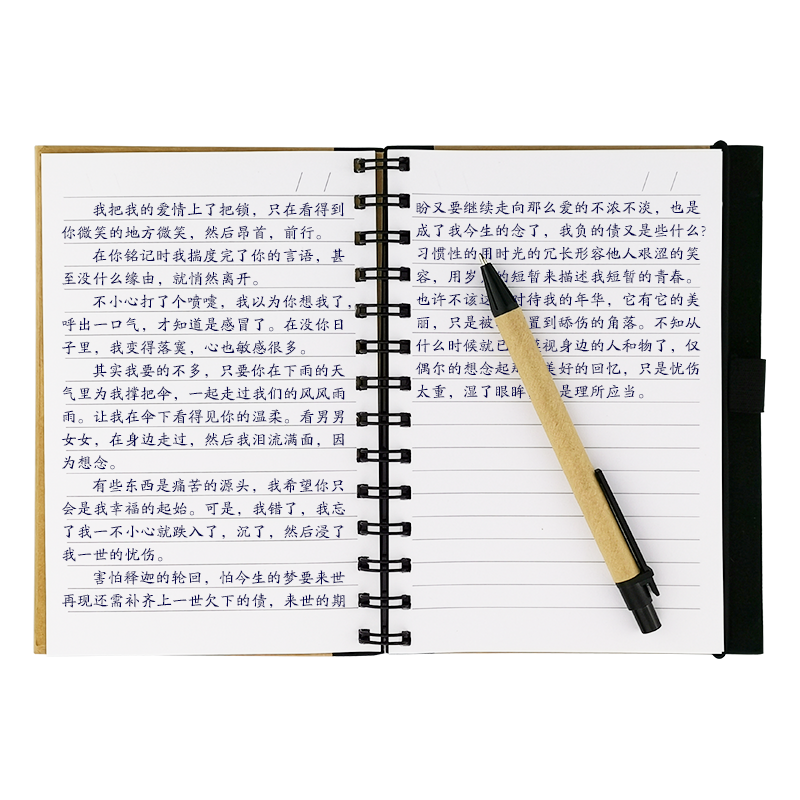 我把我的爱情上了把锁，只在看得到
你微笑的地方微笑，然后昂首，前行。
在你铭记时我揣度完了你的言语，甚
至没什么缘由，就悄然离开。
不小心打了个喷嚏，我以为你想我了，
呼出一口气，才知道是感冒了。在没你日
子里，我变得落寞，心也敏感很多。
其实我要的不多，只要你在下雨的天
气里为我撑把伞，一起走过我们的风风雨
雨。让我在伞下看得见你的温柔。看男男
女女，在身边走过，然后我泪流满面，因
为想念。
有些东西是痛苦的源头，我希望你只
会是我幸福的起始。可是，我错了，我忘
了我一不小心就跌入了，沉了，然后浸了
我一世的忧伤。
害怕释迦的轮回，怕今生的梦要来世
再现还需补齐上一世欠下的债，来世的期
盼又要继续走向那么爱的不浓不淡，也是
成了我今生的念了，我负的债又是些什么?
习惯性的用时光的冗长形容他人艰涩的笑
容，用岁的短暂来描述我短暂的青春。
也许不该这对待我的年华，它有它的美
丽，只是被置到舔伤的角落。不知从
什么时候就已蔑视身边的人和物了，仅
偶尔的想念起美好的回忆，只是忧伤
太重，湿了眼眸是理所应当。